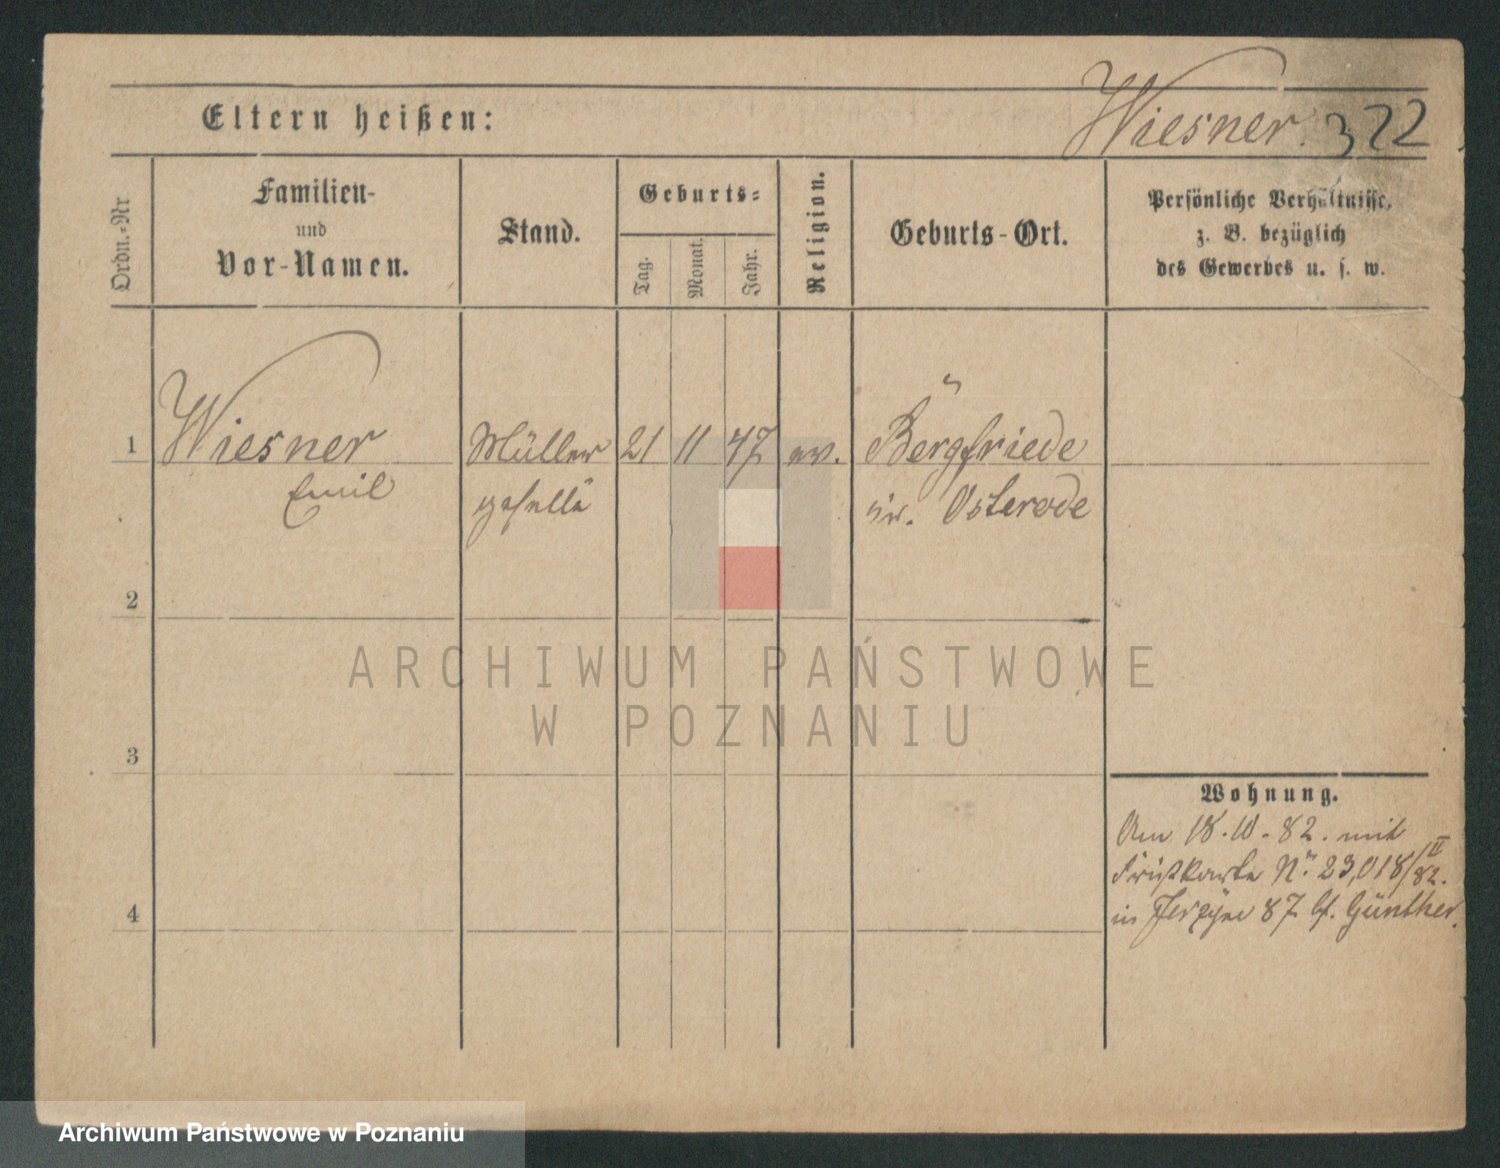 Wiesner. 322
Eltern heißen:
Ordn.-Nr
Familien-
und
Vor-Namen.
Stand.
Geburts-
Tag.
Monat.
Jahr.
Religion.
Geburts-Ort.
Persönliche Verhältnisse,
z. B. bezüglich
des Gewerbes u. s. w.
1 Wiesner Müller 21 11 47 ev. Bergfriede
Emil geselle Kr. Osterode
2
3
4
Wohnung.
Am 18.10.82. mit
No. 23,018/82. II
in 87 bei Günther.
ARCHIWUM PAŃSTWOWE
W POZNANIU
Archiwum Państwowe w Poznaniu